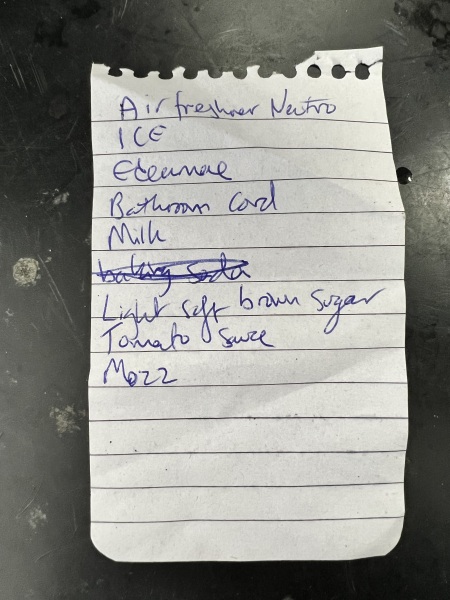 Air freshner Neutro
ICE
Edamame
Bathroom Cord
Milk
baking soda
Light soft brown Sugar
Tomato Sauce
Mozz